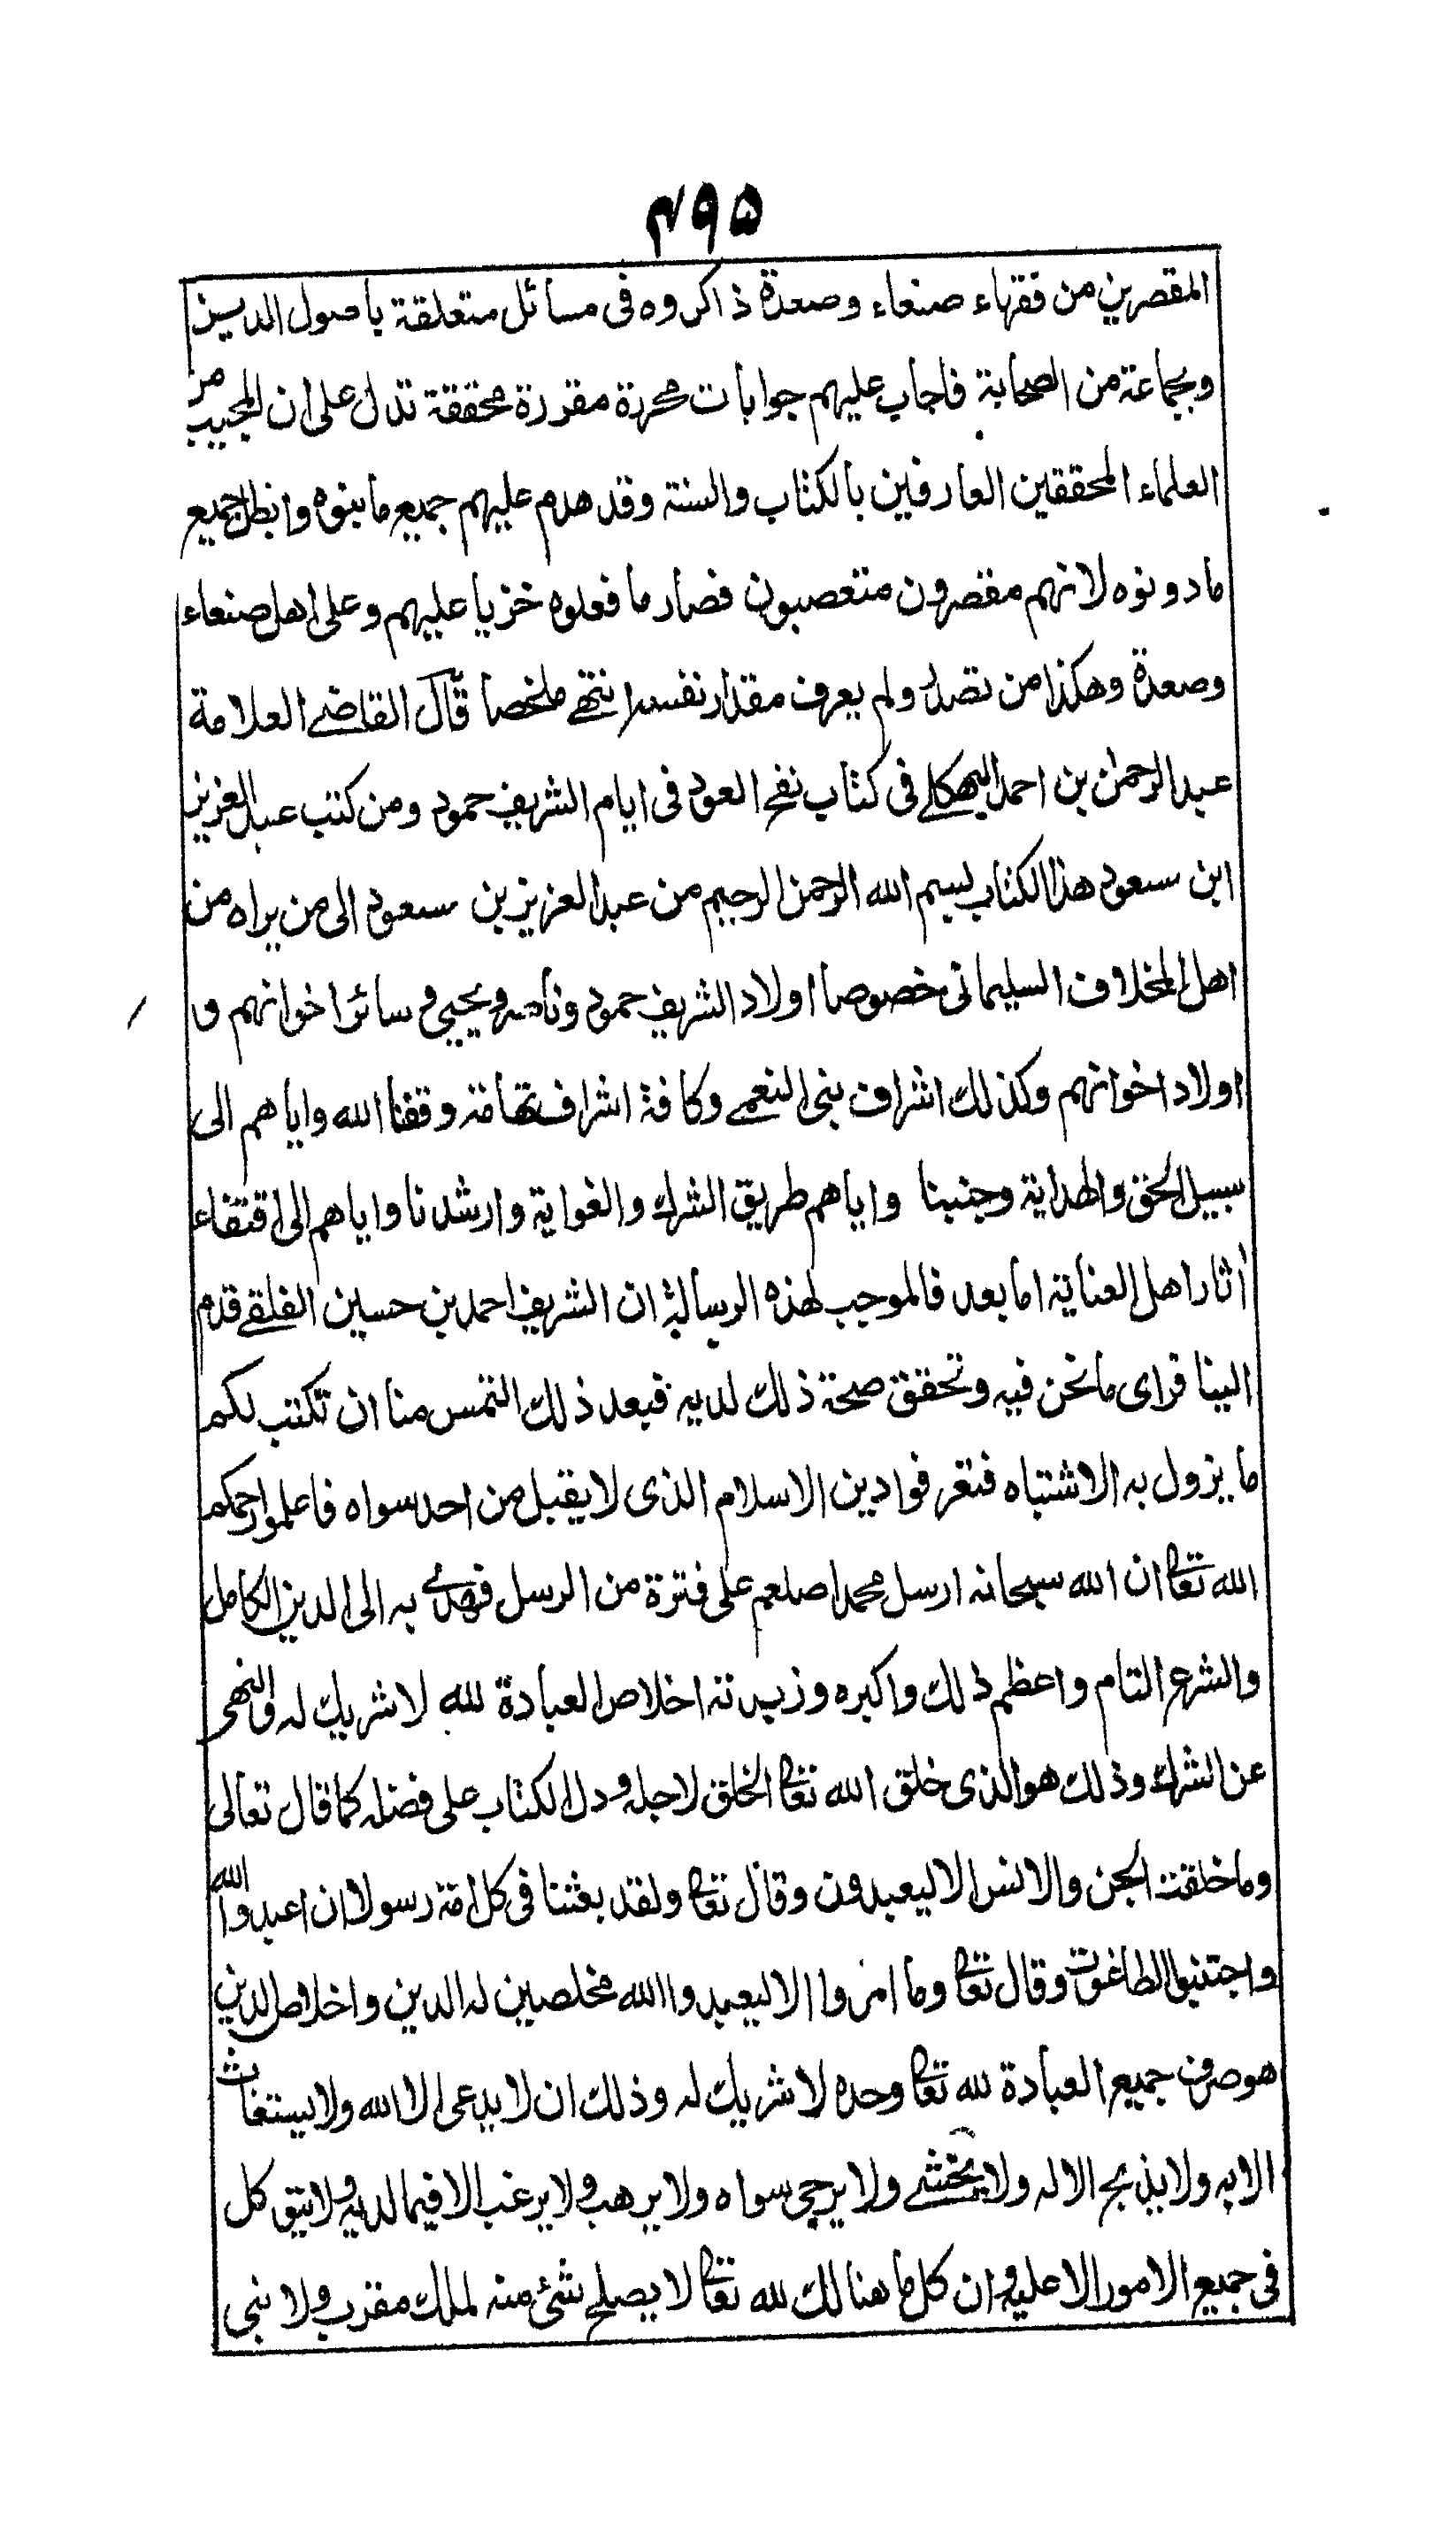 ۴۹۵
المقصرين من فقهاء صنعاء وصعدة ذاكروه فى مسائل متعلقة باصول الدين
وبجماعة من الصحابة فاجاب عليهم جوابات محررة مقررة محققة تدل على ان المجيب من
العلماء المحققين العارفين بالكتاب والسنة وقد هدم عليهم جميع ما بنوه وابطل جميع
ما دونوه لانهم مقصرون متعصبون فصار ما فعلوه خزيا عليهم وعلى اهل صنعاء
وصعدة وهكذا من تصدر ولم يعرف مقدار نفسه انتهے ملخصا قال القاضے العلامة
عبد الرحمن بن احمد البهكلے فى كتاب نفح العود فى ايام الشريف حمود ومن كتب عبد العزيز
ابن سعود هذا الكتاب بسيم الله الرحمن الرحيم من عبد العزيز بن سعود الى من يراه من
اهل المخلاف السليمانى خصوصا اولاد الشريف حمود وناصر ويحيى و سائر اخوانهم و
اولاد اخوانهم وكذلك اشراف بنى النعمے وكافة اشراف تهامة وفقنا الله واياهم الى
سبيل الحق والهداية وجنبنا واياهم طريق الشرك والغواية وارشدنا واياهم الى اقتفاء
أثار اهل العناية اما بعد فالموجب لهذه الرسالة ان الشريف احمد بن حسين الفلقے قدم
الينا فراى ما نحن فيه وتحقق صحة ذلك لديه فبعد ذلك التمس منا ان نكتب لكم
ما يزول به الاشتباه فتعرفوا دين الاسلام الذى لا يقبل من احد سواه فاعلموا رحمكم
الله تعا ان الله سبحانه ارسل محمدا صلعم على فترة من الرسل فهدے به الى الدين الكامل
والشرع التام واعظم ذلك واكبره وزبدته اخلاص العبادة لله لا شريك له والنهى
عن الشرك وذلك هو الذى خلق الله تعا الخلق لاجله ودل الكتاب على فضله كما قال تعالى
وما خلقت الجن والانس الا ليعبدون وقال تعا ولقد بعثنا فى كل امة رسولا ان اعبدوا الله
واجتنبوا الطاغوت وقال تعا وما امروا الا ليعبدوا الله مخلصين له الدين واخلاص الدين
هو صرف جميع العبادة لله تعا وحده لا شريك له وذلك ان لا يدعى الا الله ولا يستغاث
الا به ولا يذبح الا له ولا يخشے ولا يرجى سواه ولا يرهب ولا يرغب الا فيما لديه ولا يتوكل
فى جميع الامور الا عليه وان كل ما هنالك لله تعا لا يصلح شئ منه لملك مقرب ولا نبى